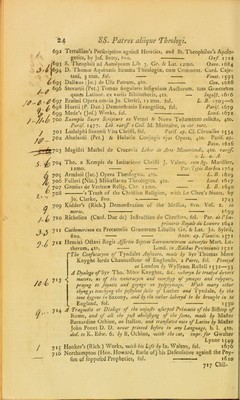 24 SS. Patres aliique Theologi.
692 Tertullian's Prescription against Heretics, and St. Theophilus's Apologetics, by Jos. Betty, 8vo. Oxf. 1722
693 S. Theophili ad Autolycum Lib. 3. Gr. & Lat. 12mo. Oxon. 1684
694 D. Thomæ Aquinatis Summa Theologica, cum Comment. Card. Cajetani, 5 tom. fol. Venet. 1593
695 Dallæus (Jo.) de Usu Patrum, 4to. Gen. 1686
696 Stevartii (Pet.) Tomus singularis insignium Auctorum, tam Græcorum quam Latinor. ex variis Bibliothecis, 4to. Ingolst. 1616
697 Erasmi Opera omnia Jo. Clerici, 11 tom. fol. L. B. 1703—06
698 Huetii (P. Dan.) Demonstratio Evangelica, fol. Paris. 1679
699 Mede's (Jos.) Works, fol. Lond. 1672
700 Exempla Sacræ Scripturæ ex Veteri & Novo Testamento collecta, 4to. Parisf. 1477. Lib. rariss. Gul. M. Maittaire, in cor. turc.
701 Ludolphi Saxonis Vita Christi, fol. Paris. ap. Cl. Chevallon 1534
702 Abælardi (Pet.) & Heloisæ Conjugis ejus Opera, 4to. Parif. ap. Buon. 1616
703 Magistri Mathei de Cracovia Liber de Arte Moriendi, 4to. rariss. s. L. a. A.
704 Tho. a Kempis de Imitatione Christi J. Valart, cum fig. Marillier, 12mo. Par. Typis Barbou 1764
705 Arnobii (Jac.) Opera Theologica, 4to. L. B. 1629
706 Fullerj (Nic.) Miscellanea Theologica, 4to. Lond. 1617
707 Grotius de Veritate Relig. Chr. 12mo. L. B. 1640
708 ———'s Truth of the Christian Religion, with Le Clerc's Notes, by Jo. Clarke, 8vo. 1743
709 Kidder's (Rich.) Demonstration of the Messias, 8vo. Vol. I. cor. maro. 1699
710 Richlieu (Card. Duc de) Instruction du Chrestien, fol. Par. de l'Imprimerie Royale du Louvre 1642
711 Catharomini ex Præceptis Græcorum Libellus Gr. & Lat. Jo. Sylvii, 8vo. Antv. ap. Plantin. 1571
712 Henrici Octavi Regis Assertio Septem Sacramentorum adversus Mart. Lutherum, 4to. Lond. in Ædibus Pynsonianis 1521
713 The Confutacyon of Tyndales Answere, made by Syr Thomas More Knyght lorde Chauncellour of Englonde, 2 Parts, fol. Prented at London by Wyllyam Rastell 1532—33
A Dyaloge of Syr Tho. More Knyghte, &c. wherin be treated dyvers maters, as of the veneracyon and worshyp of ymages and relyques, prayng to sayntis and goyng on pylgrymage. With many other thyngys touching the pestylent secte of Luther and Tyndale, by the tone bygone in Saxony, and by the tother laboryd to be brought in to England, fol. 1530
714 A Tragœdie or Dialoge of the uniuste usurped Primacie of the Bishop of Rome, and of all the just abolishyng of the same, made by Master Barnardine Ochine, an Italian, and translated oute of Latin by Master John Ponet D. D. never printed before in any Language, b. l. 4to. dedic. to K. Edw. 6. by B. Ochine, with the cut, impr. for Gwalter Lynne 1549
715 Hooker's (Rich.) Works, with his Life by Is. Walton, fol. 1676
716 Northampton (Hen. Howard, Earle of) his Defensative against the Poyson of supposed Prophecies, fol. 1620
717 Chil-